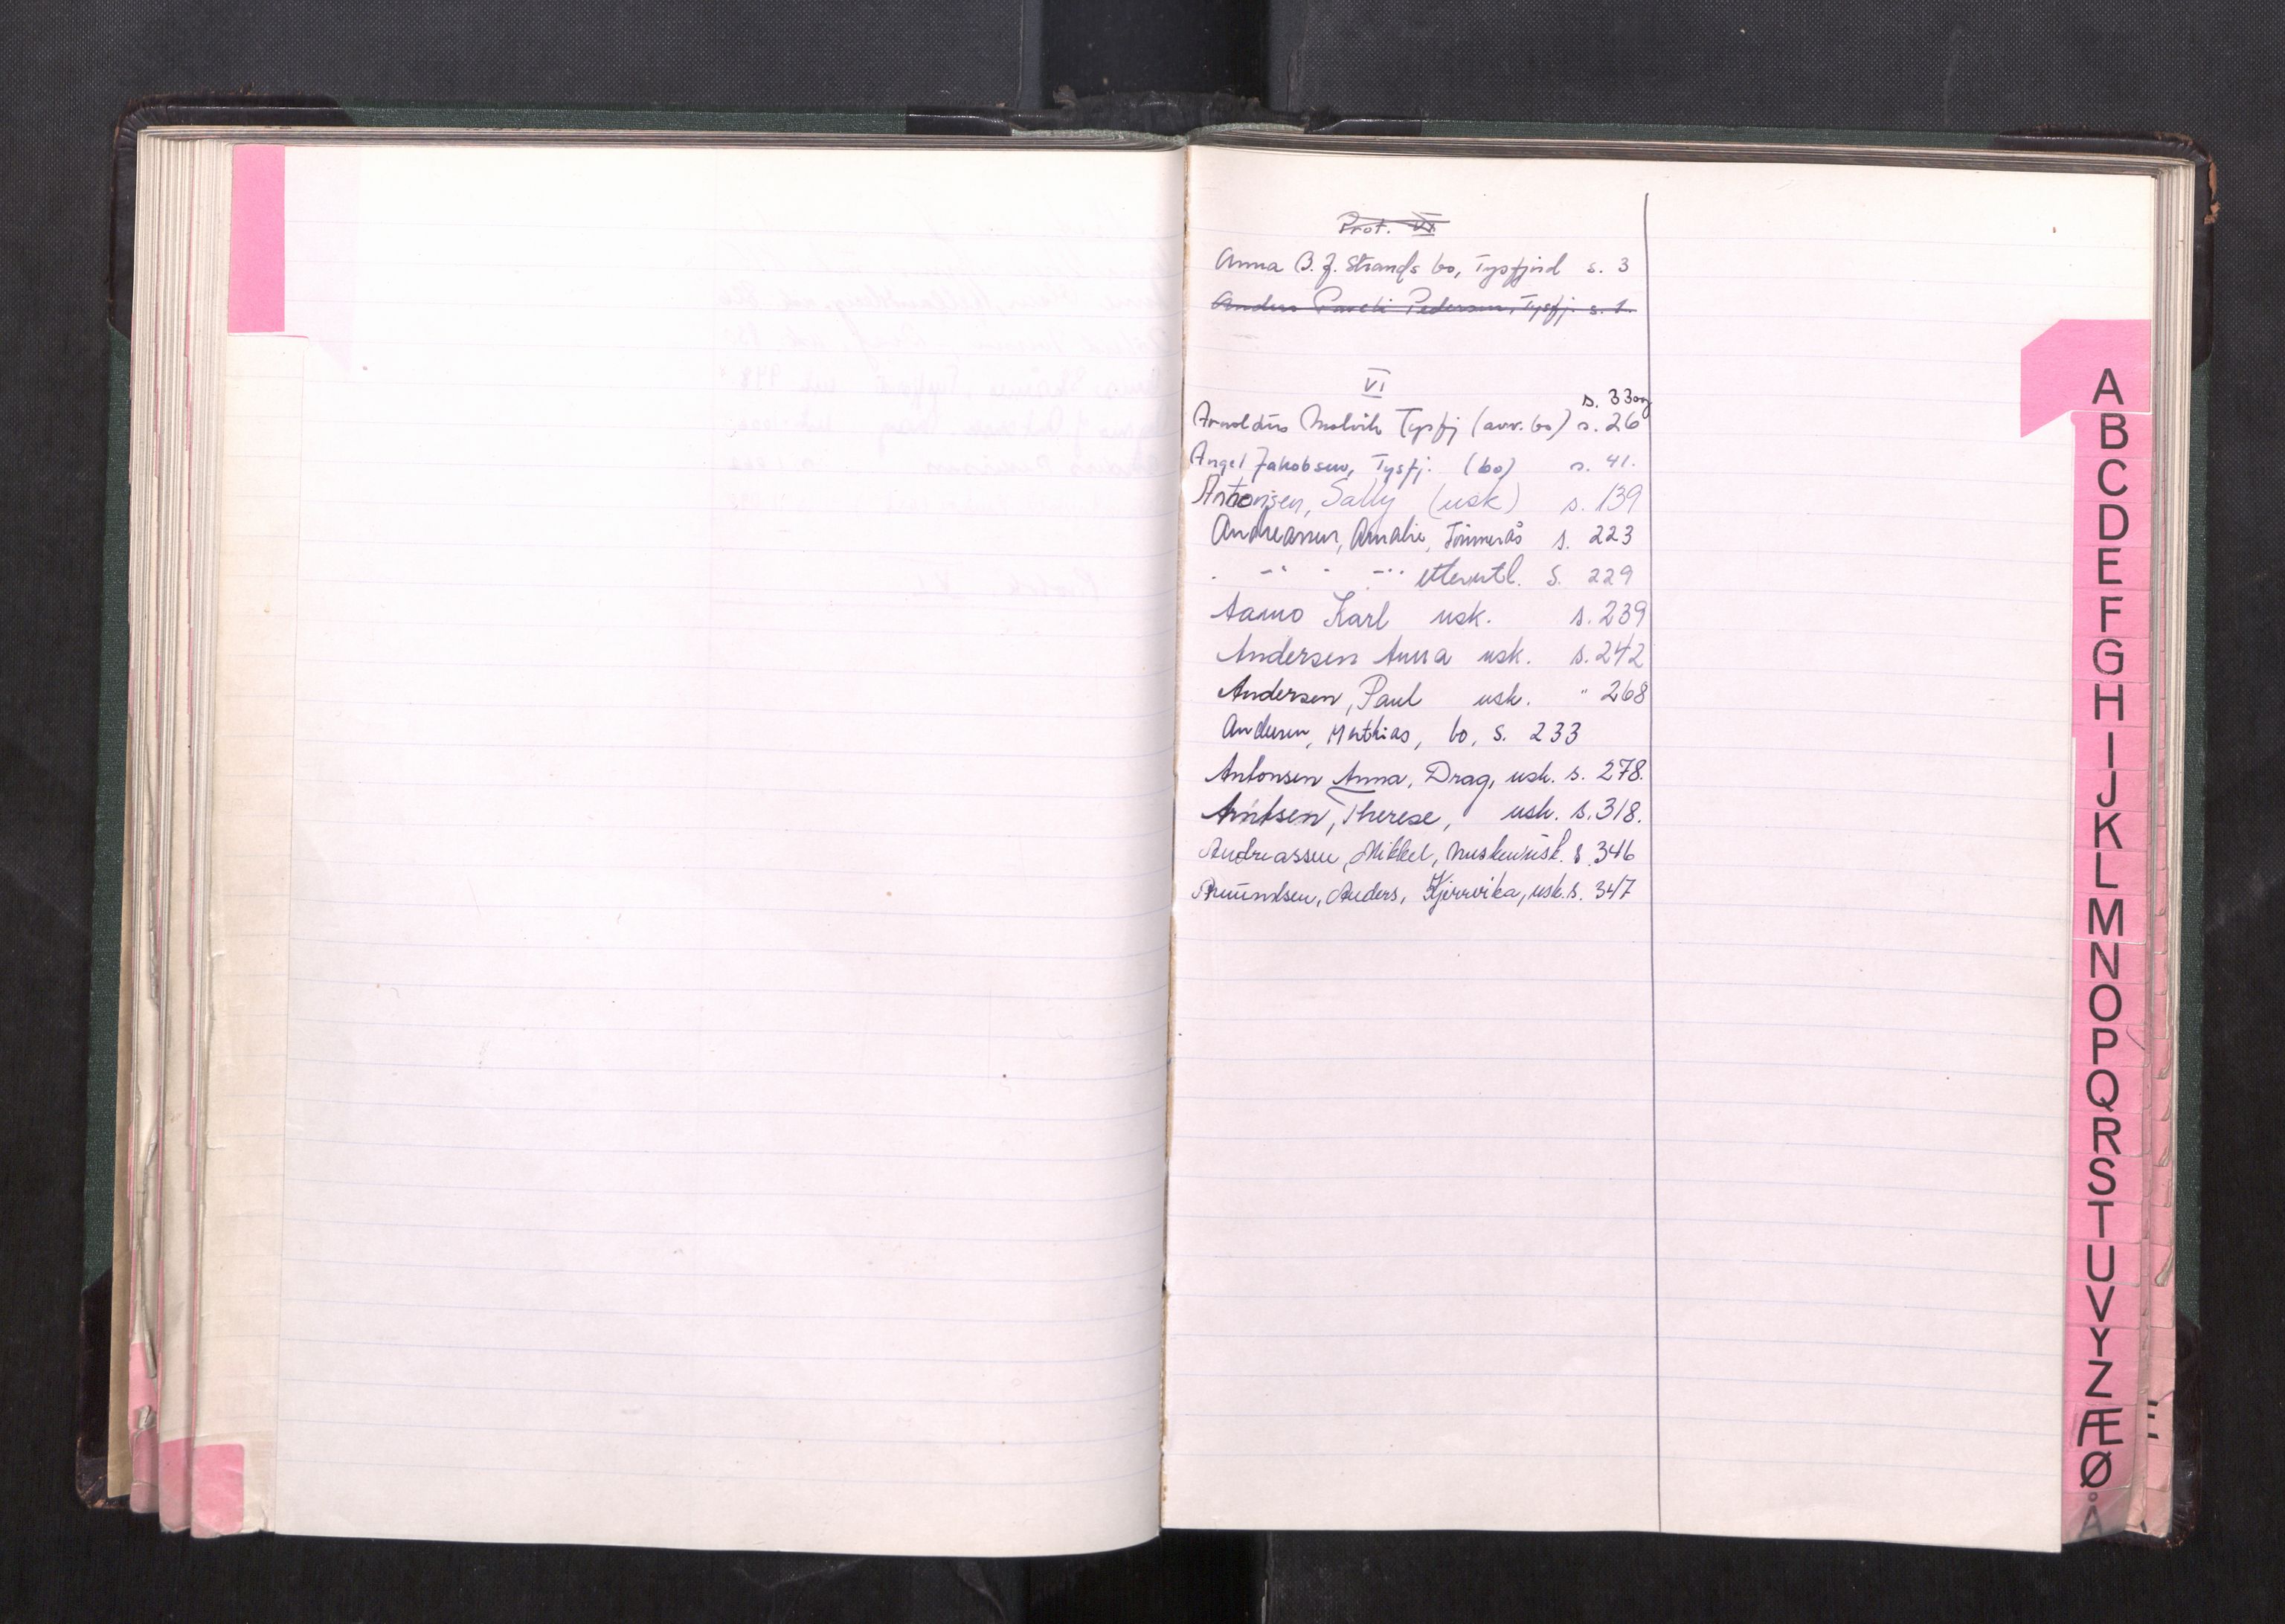 Prot. VI
Anna B. J. Strands bo, Tysfjord s. 3
Anders Paveli Pedersen, Tysfj. s. 1.
VI
s. 33 og
Arnoldus Molvik Tysfj (avv. bo) s. 26
Angel Jakobsen, Tysfj. (bo) s. 41.
Antonsen, Sally (usk) s. 139
Andreassen, Amalie, Tømmerås s. 223
- " - " - etterutl. S. 229
Aamo Karl usk. s. 239
Andersen Anna usk. s. 242
Andersen, Paul usk. " 268
Andersen, Mathias, bo, s. 233
Antonsen Anna, Drag, usk. s. 278.
Arntsen, Therese, usk. s. 318.
Andreassen, Mikkel, Musken usk. s. 346
Amundsen, Anders, Kjerrvika, usk. s. 347
A
B
C
D
E
F
G
H
I
J
K
L
M
N
O
P
Q
R
S
T
U
V
Y
Z
Æ
Ø
Å